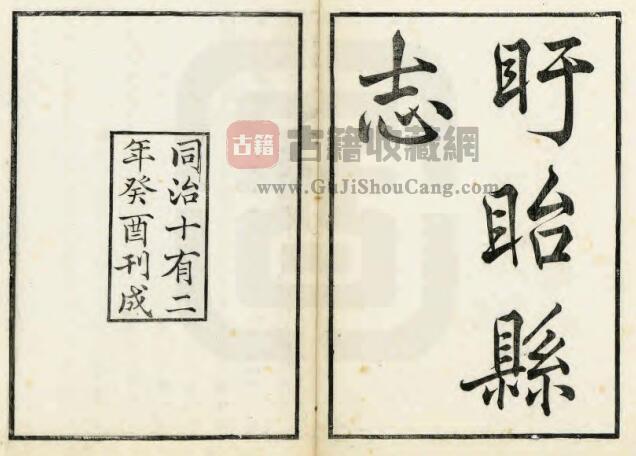 盱眙縣
志
同治十有二
年癸酉刊成
古籍
古籍收藏網
www.GuJiShouCang.com